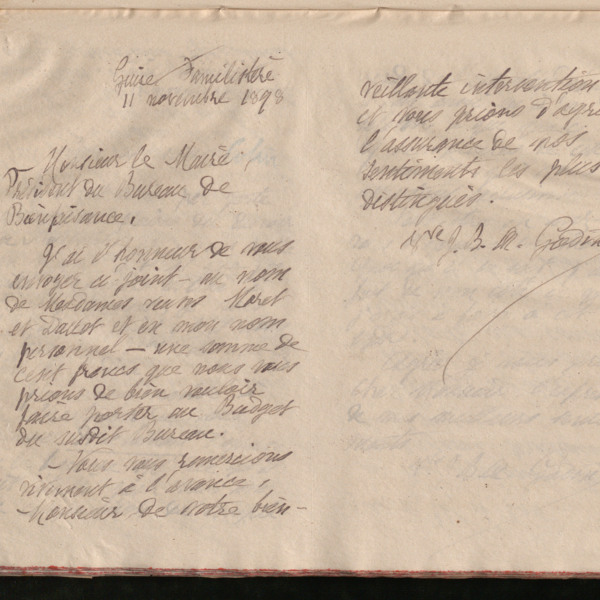 Guise Familistère
11 novembre 1898
Monsieur le Maire,
Président du Bureau de
Bienfaisance,
J'ai l'honneur de vous
envoyer ci joint – au nom
de Mesdames veuves Moret
et Dallot et en mon nom
personnel – une somme de
cent francs que nous vous
prions de bien vouloir
faire porter au Budget
du susdit Bureau.
Nous vous remercions
vivement à l'avance,
Monsieur de votre bien-
veillante intervention
et vous prions d'agré
l'assurance de nos
sentiments les plus
distingués.
Vve J. B. A. Godin